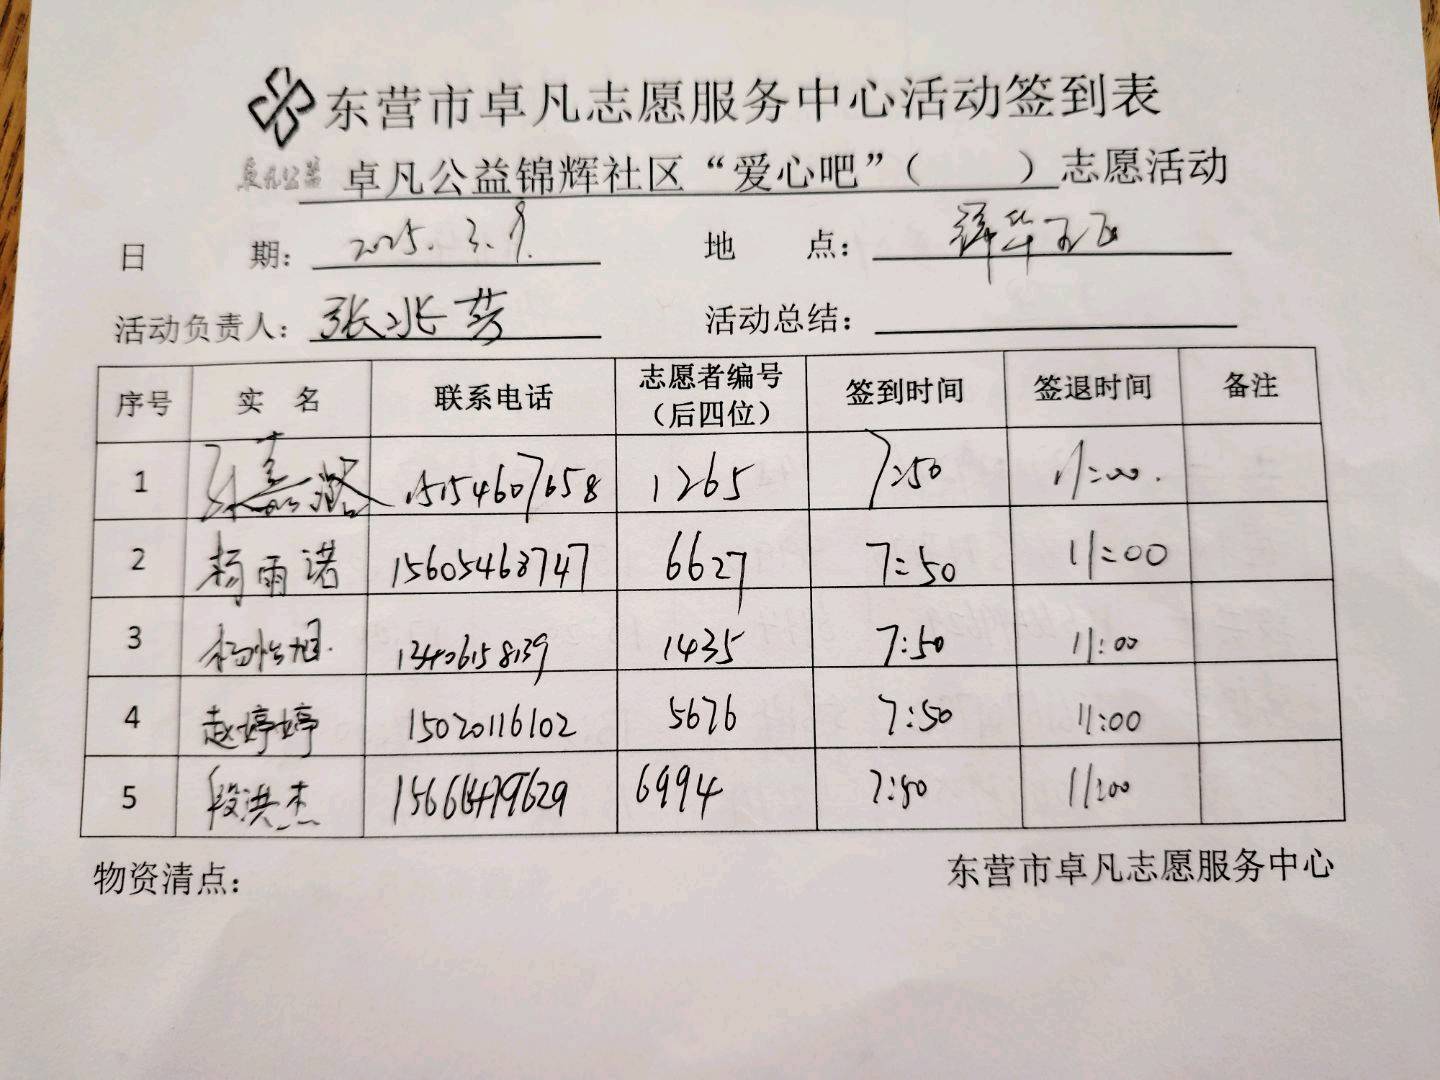 东营市卓凡志愿服务中心活动签到表
卓凡公益 卓凡公益锦辉社区“爱心吧”（ ）志愿活动
日 期： 2025.3.9. 地 点：
活动负责人： 张兆芬 活动总结：
序号 实 名 联系电话 志愿者编号（后四位） 签到时间 签退时间 备注
1 15154607658 1265 7:50 11:00.
2 杨雨诺 15605468747 6627 7:50 11:00
3 杨怡旭 13406158139 1435 7:50 11:00
4 赵婷婷 15020116102 5676 7:50 11:00
5 段洪杰 6994 7:50 11:00
物资清点： 东营市卓凡志愿服务中心